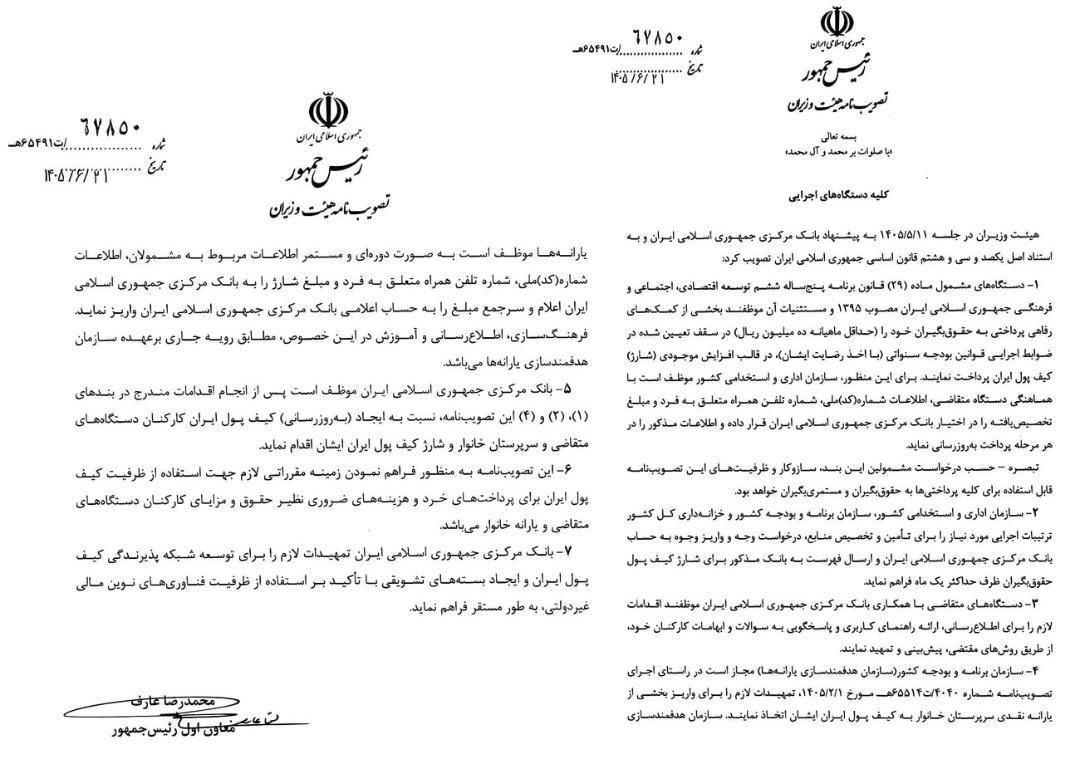 جمهوری اسلامی ایران
رئیس جمهور
تصویب نامه هیئت وزیران
شماره ۶۷۸۵۰/ت۶۵۴۹۱هـ
تاریخ ۱۴۰۵/۶/۲۱
بسمه تعالی
«با صلوات بر محمد و آل محمد»
کلیه دستگاه‌های اجرایی
هیئت وزیران در جلسه ۱۴۰۵/۵/۱۱ به پیشنهاد بانک مرکزی جمهوری اسلامی ایران و به
استناد اصل یکصد و سی و هشتم قانون اساسی جمهوری اسلامی ایران تصویب کرد:
۱- دستگاه‌های مشمول ماده (۲۹) قانون برنامه پنج‌ساله ششم توسعه اقتصادی، اجتماعی و
فرهنگی جمهوری اسلامی ایران مصوب ۱۳۹۵ و مستثنیات آن موظفند بخشی از کمک‌های
رفاهی پرداختی به حقوق‌بگیران خود را (حداقل ماهیانه ده میلیون ریال) در سقف تعیین شده در
ضوابط اجرایی قوانین بودجه سنواتی (با اخذ رضایت ایشان)، در قالب افزایش موجودی (شارژ)
کیف پول ایران پرداخت نمایند. برای این منظور، سازمان اداری و استخدامی کشور موظف است با
هماهنگی دستگاه متقاضی، اطلاعات شماره(کد)ملی، شماره تلفن همراه متعلق به فرد و مبلغ
تخصیص‌یافته را در اختیار بانک مرکزی جمهوری اسلامی ایران قرار داده و اطلاعات مذکور را در
هر مرحله پرداخت به‌روزرسانی نماید.
تبصره – حسب درخواست مشمولین این بند، سازوکار و ظرفیت‌های این تصویب‌نامه
قابل استفاده برای کلیه پرداختی‌ها به حقوق‌بگیران و مستمری‌بگیران خواهد بود.
۲- سازمان اداری و استخدامی کشور، سازمان برنامه و بودجه کشور و خزانه‌داری کل کشور
ترتیبات اجرایی مورد نیاز را برای تأمین و تخصیص منابع، درخواست وجه و واریز وجوه به حساب
بانک مرکزی جمهوری اسلامی ایران و ارسال فهرست به بانک مذکور برای شارژ کیف پول
حقوق‌بگیران ظرف حداکثر یک ماه فراهم نماید.
۳- دستگاه‌های متقاضی با همکاری بانک مرکزی جمهوری اسلامی ایران موظفند اقدامات
لازم را برای اطلاع‌رسانی، ارائه راهنمای کاربری و پاسخگویی به سوالات و ابهامات کارکنان خود،
از طریق روش‌های مقتضی، پیش‌بینی و تمهید نمایند.
۴- سازمان برنامه و بودجه کشور(سازمان هدفمندسازی یارانه‌ها) مجاز است در راستای اجرای
تصویب‌نامه شماره ۴۰۴۰/ت۶۵۵۱۴هـ مورخ ۱۴۰۵/۲/۱، تمهیدات لازم را برای واریز بخشی از
یارانه نقدی سرپرستان خانوار به کیف پول ایران ایشان اتخاذ نمایند. سازمان هدفمندسازی
جمهوری اسلامی ایران
رئیس جمهور
تصویب نامه هیئت وزیران
شماره ۶۷۸۵۰/ت۶۵۴۹۱هـ
تاریخ ۱۴۰۵/۶/۲۱
یارانه‌ها موظف است به صورت دوره‌ای و مستمر اطلاعات مربوط به مشمولان، اطلاعات
شماره(کد)ملی، شماره تلفن همراه متعلق به فرد و مبلغ شارژ را به بانک مرکزی جمهوری اسلامی
ایران اعلام و سرجمع مبلغ را به حساب اعلامی بانک مرکزی جمهوری اسلامی ایران واریز نماید.
فرهنگ‌سازی، اطلاع‌رسانی و آموزش در این خصوص، مطابق رویه جاری برعهده سازمان
هدفمندسازی یارانه‌ها می‌باشد.
۵- بانک مرکزی جمهوری اسلامی ایران موظف است پس از انجام اقدامات مندرج در بندهای
(۱)، (۲) و (۴) این تصویب‌نامه، نسبت به ایجاد (به‌روزرسانی) کیف پول ایران کارکنان دستگاه‌های
متقاضی و سرپرستان خانوار و شارژ کیف پول ایران ایشان اقدام نماید.
۶- این تصویب‌نامه به منظور فراهم نمودن زمینه مقرراتی لازم جهت استفاده از ظرفیت کیف
پول ایران برای پرداخت‌های خرد و هزینه‌های ضروری نظیر حقوق و مزایای کارکنان دستگاه‌های
متقاضی و یارانه خانوار می‌باشد.
۷- بانک مرکزی جمهوری اسلامی ایران تمهیدات لازم را برای توسعه شبکه پذیرندگی کیف
پول ایران و ایجاد بسته‌های تشویقی با تأکید بر استفاده از ظرفیت فناوری‌های نوین مالی
غیردولتی، به طور مستقر فراهم نماید.
محمدرضا عارف
معاون اول رئیس‌جمهور